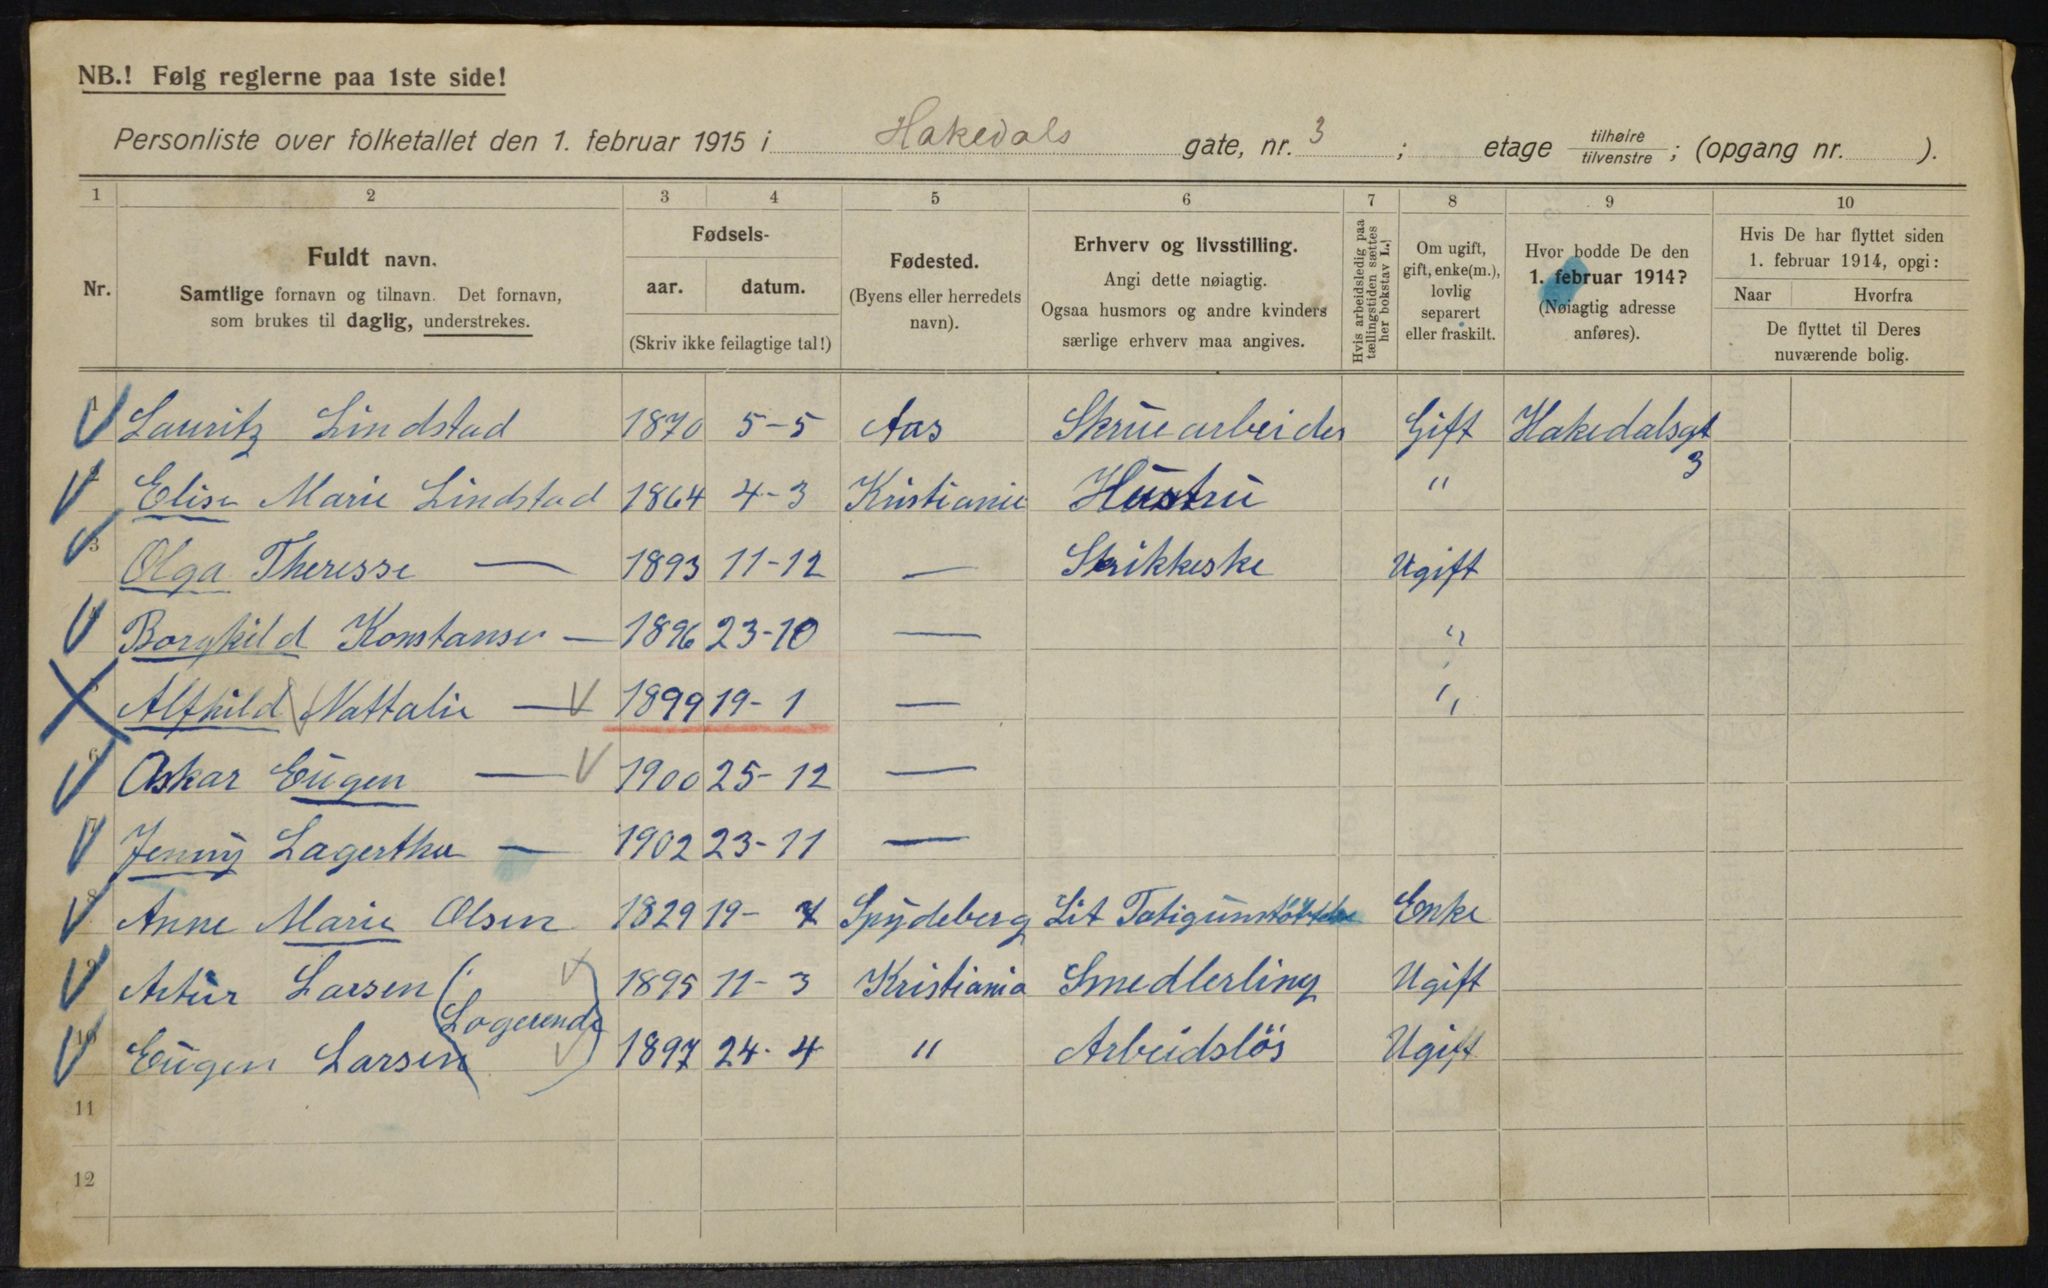 NB.! Følg reglerne paa 1ste side!
Personliste over folketallet den 1. februar 1915 i Hakedals gate, nr. 3 ; etage tilhøire tilvenstre ; (opgang nr. ).
1 2 3 4 5 6 7 8 9 10
Nr.
Fuldt navn.
Samtlige fornavn og tilnavn. Det fornavn,
som brukes til daglig, understrekes.
Fødsels-
aar. datum.
(Skriv ikke feilagtige tal!)
Fødested.
(Byens eller herredets
navn).
Erhverv og livsstilling.
Angi dette nøiagtig.
Ogsaa husmors og andre kvinders
særlige erhverv maa angives.
Hvis arbeidsledig paa
tællingstiden sættes
her bokstav L.)
Om ugift,
gift, enke(m.),
lovlig
separert
eller fraskilt.
Hvor bodde De den
1. februar 1914?
(Nøiagtig adresse
anføres).
Hvis De har flyttet siden
1. februar 1914, opgi:
Naar Hvorfra
De flyttet til Deres
nuværende bolig.
1 Lauritz Lindstad 1870 5-5 Aas Skruearbeider Gift Hakedalsgt
3
2 Elise Marie Lindstad 1864 4-3 Kristiania Hustru "
3 Olga Theresse — 1893 11-12 — Strikkeske Ugift
4 Borghild Konstanse — 1896 23-10 — "
5 Alfhild Nattalie — 1899 19-1 — "
6 Oskar Eugen — 1900 25-12 —
7 Jenny Lagertha — 1902 23-11 —
8 Anne Marie Olsen 1829 19- Spydeberg Lit Enke
9 Artur Larsen 1895 11-3 Kristiania Smedlerling Ugift
Logerende
10 Eugen Larsen 1897 24-4 " Arbeidsløs Ugift
11
12